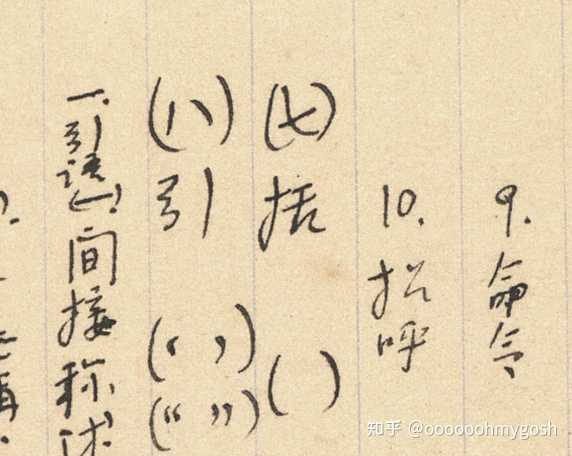 9. 命令
10. 招呼
(七) 括 ( )
(八) 引 (‘ ’) (“ ”)
一. 引语(一). 间接称述
知乎 @oooooohmygosh